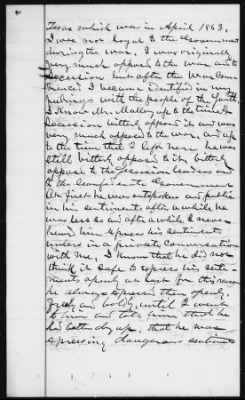 Texas which was in April 1863.
I was not loyal to the Government
during the war. I was originally
very much opposed to the war and to
secession but after the War Com
menced I became identified in my
feelings with the people of the South
I know Mr. Mallory up to the time of
Secession bitterly opposed it and was
very much opposed to the war, and up
to the time that I left here he was
still bitterly opposed to it, bitterly
opposed to the secession leaders and
to the Confederate Government
At first he was outspoken and public
in his sentiments after a while he
was less so and after a while I never
heard him express his sentiments
unless in a private conversation
with me, I know that he did not
think it safe to express his senti-
ments openly at last for this reason
he always expressed them openly,
freely and boldly until I went
to him and told him that he
had better dry up, that he was
expressing dangerous sentiments